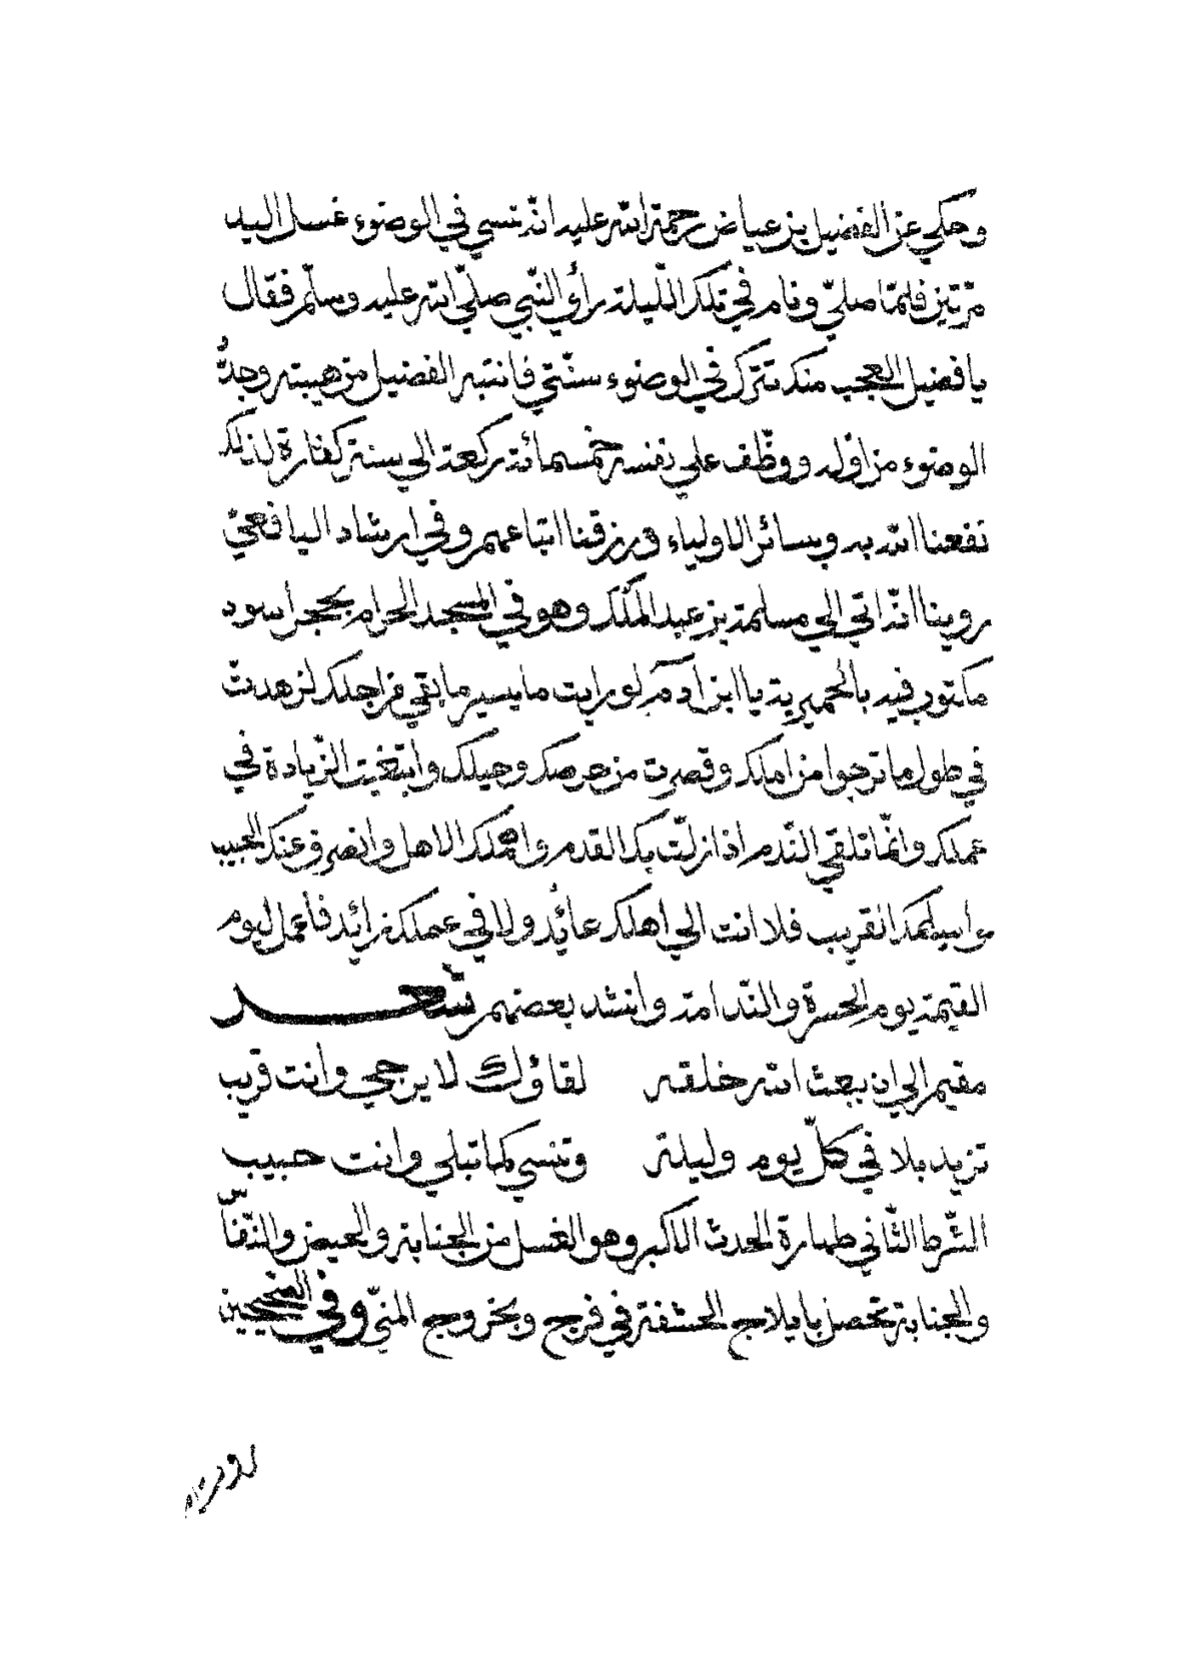 وحكي عن الفضيل بن عياض رحمة الله عليه انه نسي في الوضوء غسل اليد
مرّتين فلمّا صلّي ونام في تلك اللّيلة رأي النّبي صلّي الله عليه وسلّم فقال
يا فضيل العجب منك تترك في الوضوء سنّتي فانتبه الفضيل من هيبته وجدّد
الوضوء من اوّله ووظّف علي نفسه خمسمائة ركعة الي سنة كفارة لذلك
نفعنا الله به وبسائر الاولياء ورزقنا اتباعهم وفي ارشاد اليافعيّ
روينا انّه اتي الي مسلمة بن عبد الملك وهو في المسجد الحرام بحجر اسود
مكتوب فيه بالحميرية يا ابن آدم لو رايت ما يسير ما بقي من اجلك لزهدت
في طول ما ترجوا من املك وقصرت من حرصك وحيلك وابتغيت الزّيادة في
عملك وانّما تلقي النّدم اذا زلّت بك القدم واسلمك الاهل وانصرف عنك الحبيب
القريب فلا انت الي اهلك عائد ولا في عملك زائد فاعمل ليوم
القيمة يوم الحسرة والنّدامة وانشد بعضهم شعر
مقيم الي ان يبعث الله خلقه لقاؤك لا يرجي وانت قريب
تزيد بلا في كلّ يوم وليلة وتنسي كما تبلي وانت حبيب
الشّرط الثّاني طهارة الحدث الاكبر وهو الغسل من الجنابة والحيض والنّفاس
والجنابة تحصل بايلاج الحشفة في فرج وبخروج المنيّ وفي الصحيحين